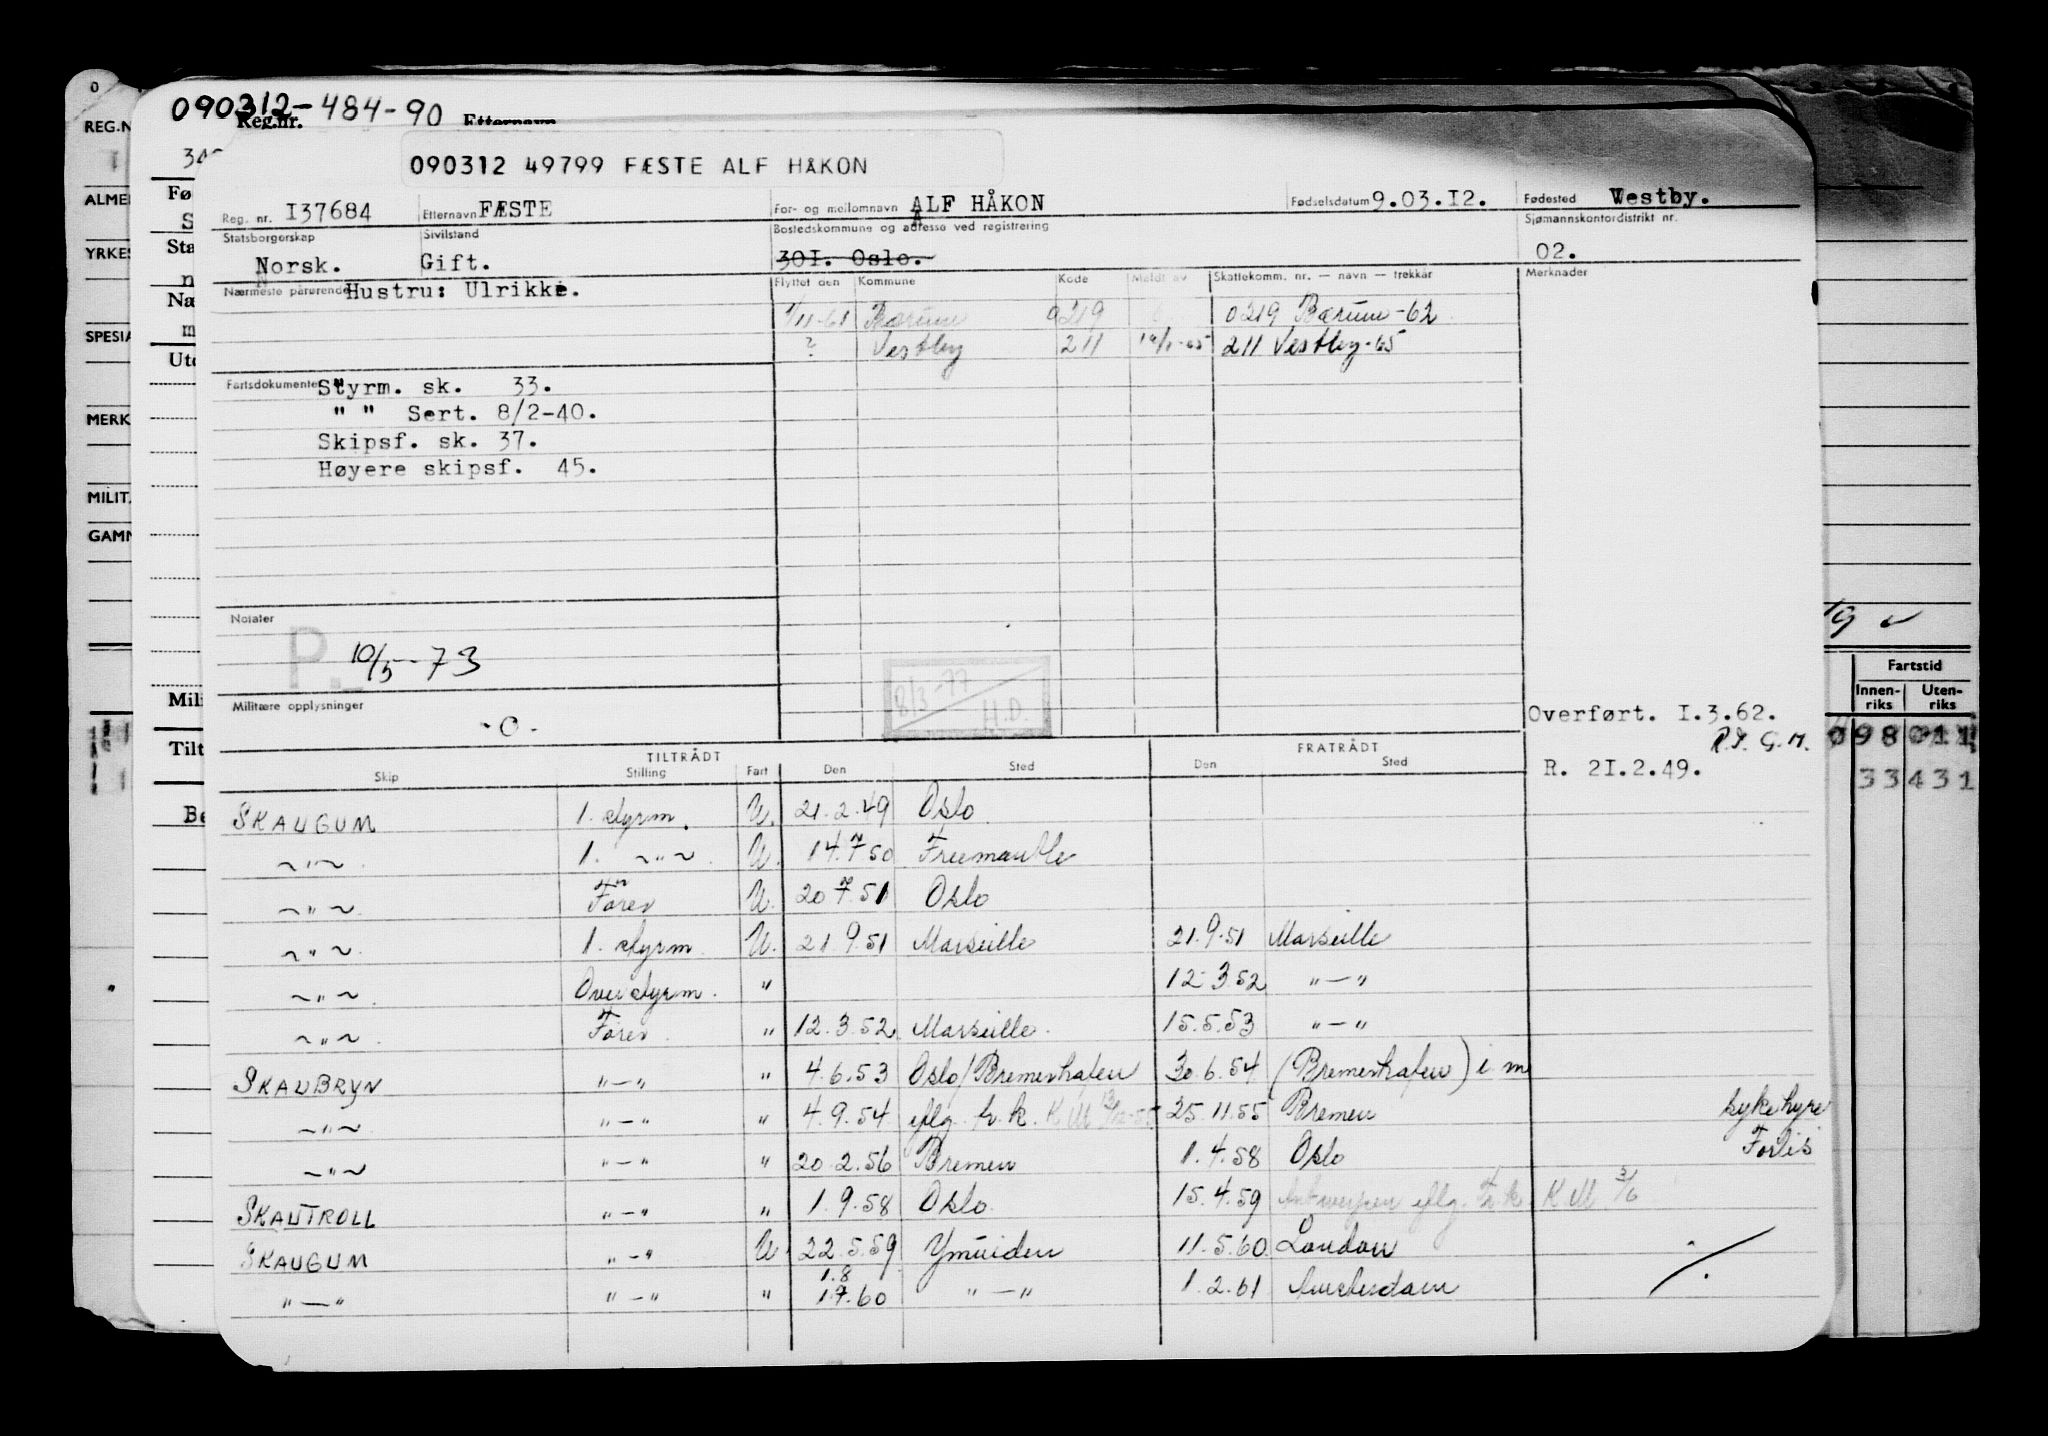 090312-484-90
Reg.nr. Etternavn
090312 49799 FÆSTE ALF HÅKON
Reg. nr. I37684 Etternavn FÆSTE For- og mellomnavn ALF HÅKON Fødselsdatum 9.03.I2. Fødested Westby.
Statsborgerskap Sivilstand Bostedskommune og adresse ved registrering Sjømannskontordistrikt nr.
Norsk. Gift. 30I. Oslo. 02.
Nærmeste pårørende Hustru: Ulrikke. Flyttet den Kommune Kode Meldt av Skattekomm. nr. — navn — trekkår Merknader
1/11-61 Bærum 0219 0219 Bærum -62
? Vestby 211 211 Vestby -65
Fartsdokumenter Styrm. sk. 33.
" " Sert. 8/2-40.
Skipsf. sk. 37.
Høyere skipsf. 45.
Notater
P. 10/5-73
8/3-77
H.D.
Militære opplysninger
-0-
Overført. I.3.62.
R. 2I.2.49.
TILTRÅDT FRATRÅDT
Skip Stilling Fart Den Sted Den Sted
SKAUGUM 1. styrm. U. 21.2.49 Oslo
~"~ 1. ~"~ U. 14.7.50 Freemantle
~"~ Fører U. 20.7.51 Oslo
~"~ 1. styrm. U. 21.9.51 Marseille 21.9.51 Marseille
~"~ Overstyrm. " 12.3.52 "—"
~"~ Fører " 12.3.52 Marseille. 15.5.53 "—"
SKAUBRYN "—" " 4.6.53 Oslo/Bremerhafen 30.6.54 (Bremerhafen) i m
~"~ "—" " 4.9.54 iflg. K.M 25.11.55 Bremen sykehyre
~"~ "—" " 20.2.56 Bremen 1.4.58 Oslo Forlis
SKAUTROLL "—" " 1.9.58 Oslo. 15.4.59 Antwerpen iflg. K M 3/6
SKAUGUM "—" U. 22.5.59 Ymuiden 11.5.60 London
"—" "—" " 1.8 "—" 1.2.61 Amsterdam
REG.N
ALMEN
YRKES
SPESIA
MERK
MILIT.
GAMM
Fartstid
Innen-riks Uten-riks
33431